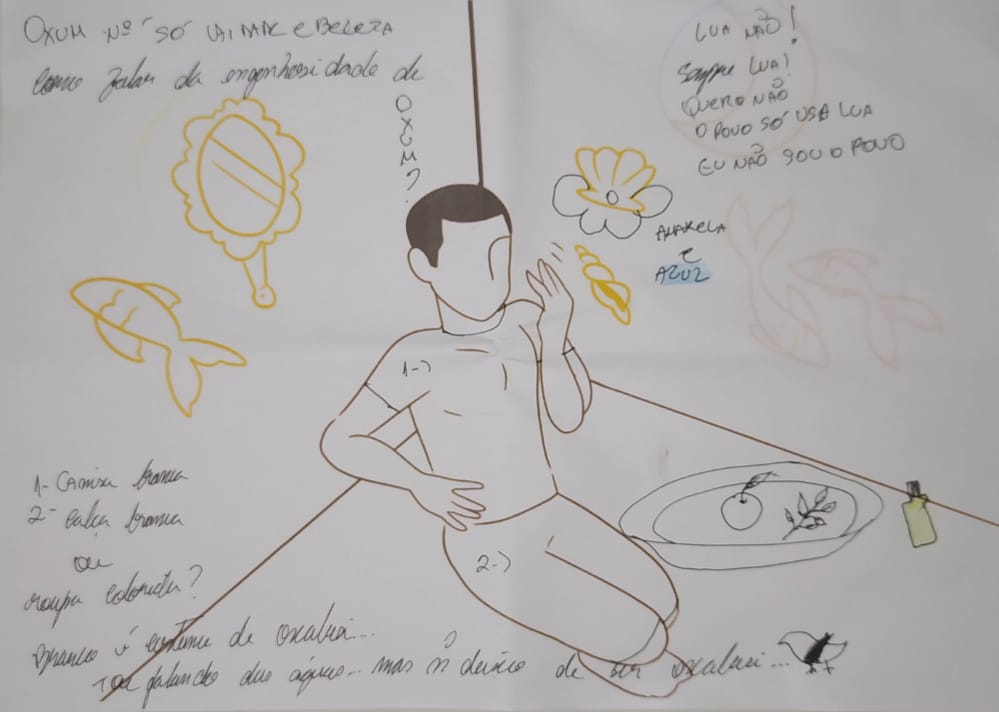 OXUM Nº SÓ VAIDADE e BELEZA
Como falar da engenhosidade de
OXUM?
LUA NÃO!
Sempre LUA!
QUERO NÃO
O POVO SÓ USA LUA
EU NÃO SOU O POVO
AMARELA
e
AZUL
1-)
1- CAMISA branca
2- calça branca
ou
roupa colorida?
2-)
Branco é costume de oxalusi...
Tou falando das águas... mas ñ deixo de ser oxalusi...